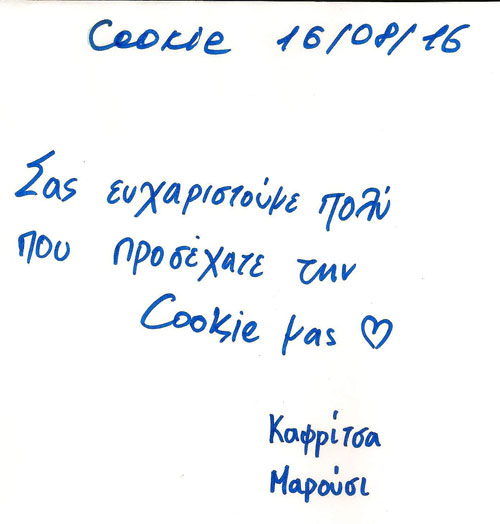 Cookie 16/08/16
Σας ευχαριστούμε πολύ
που προσέχατε την
Cookie μας ♡
Καφρίτσα
Μαρούσι